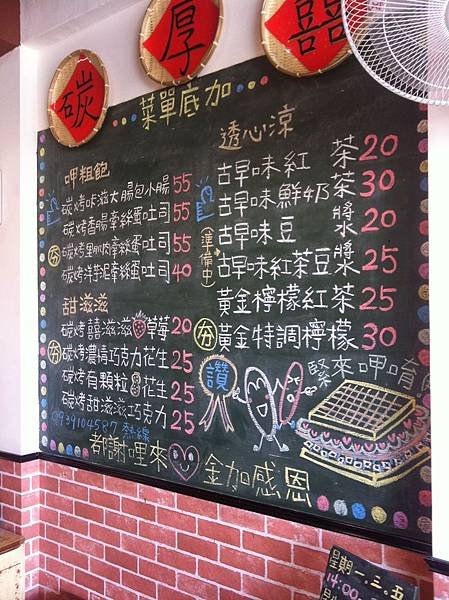 碳 厚 囍
菜單底加
呷粗飽
碳烤咔滋大腸包小腸 55
碳烤香腸牽絲蛋吐司 55
夯 碳烤里肌肉牽絲蛋吐司 55
碳烤洋芋泥牽絲蛋吐司 40
甜滋滋
碳烤囍滋滋草莓 20
夯 碳烤濃情巧克力花生 25
碳烤有顆粒花生 25
碳烤甜滋滋巧克力 25
透心涼
古早味紅茶 20
古早味鮮奶茶 30
古早味豆漿 20
(準備中) 古早味紅茶豆漿 25
黃金檸檬紅茶 25
夯 黃金特調檸檬 30
讚
緊來呷唷
都謝哩來 金加感恩
星期一.三.五
14:00